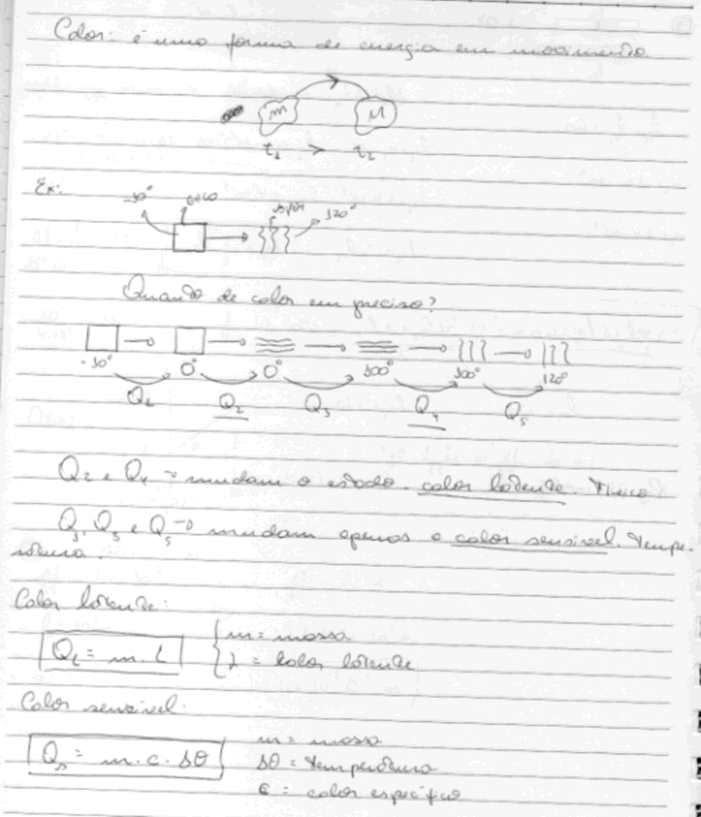 Calor: é uma forma de energia em movimento.
m M
t₁ > t₂
Ex: -30° gelo vapor 120°
Quando de calor eu preciso?
-30° 0° 0° 100° 100° 120°
Q₁ Q₂ Q₃ Q₄ Q₅
Q₂ e Q₄ → mudam o estado. calor latente. Físico
Q₁, Q₃ e Q₅ → mudam apenas a calor sensível. tempe-
ratura.
Calor latente:
Q_L = m. L { m = massa
L = calor latente
Calor sensível:
Qs = m.c. Δθ m = massa
Δθ = temperatura
c = calor específico